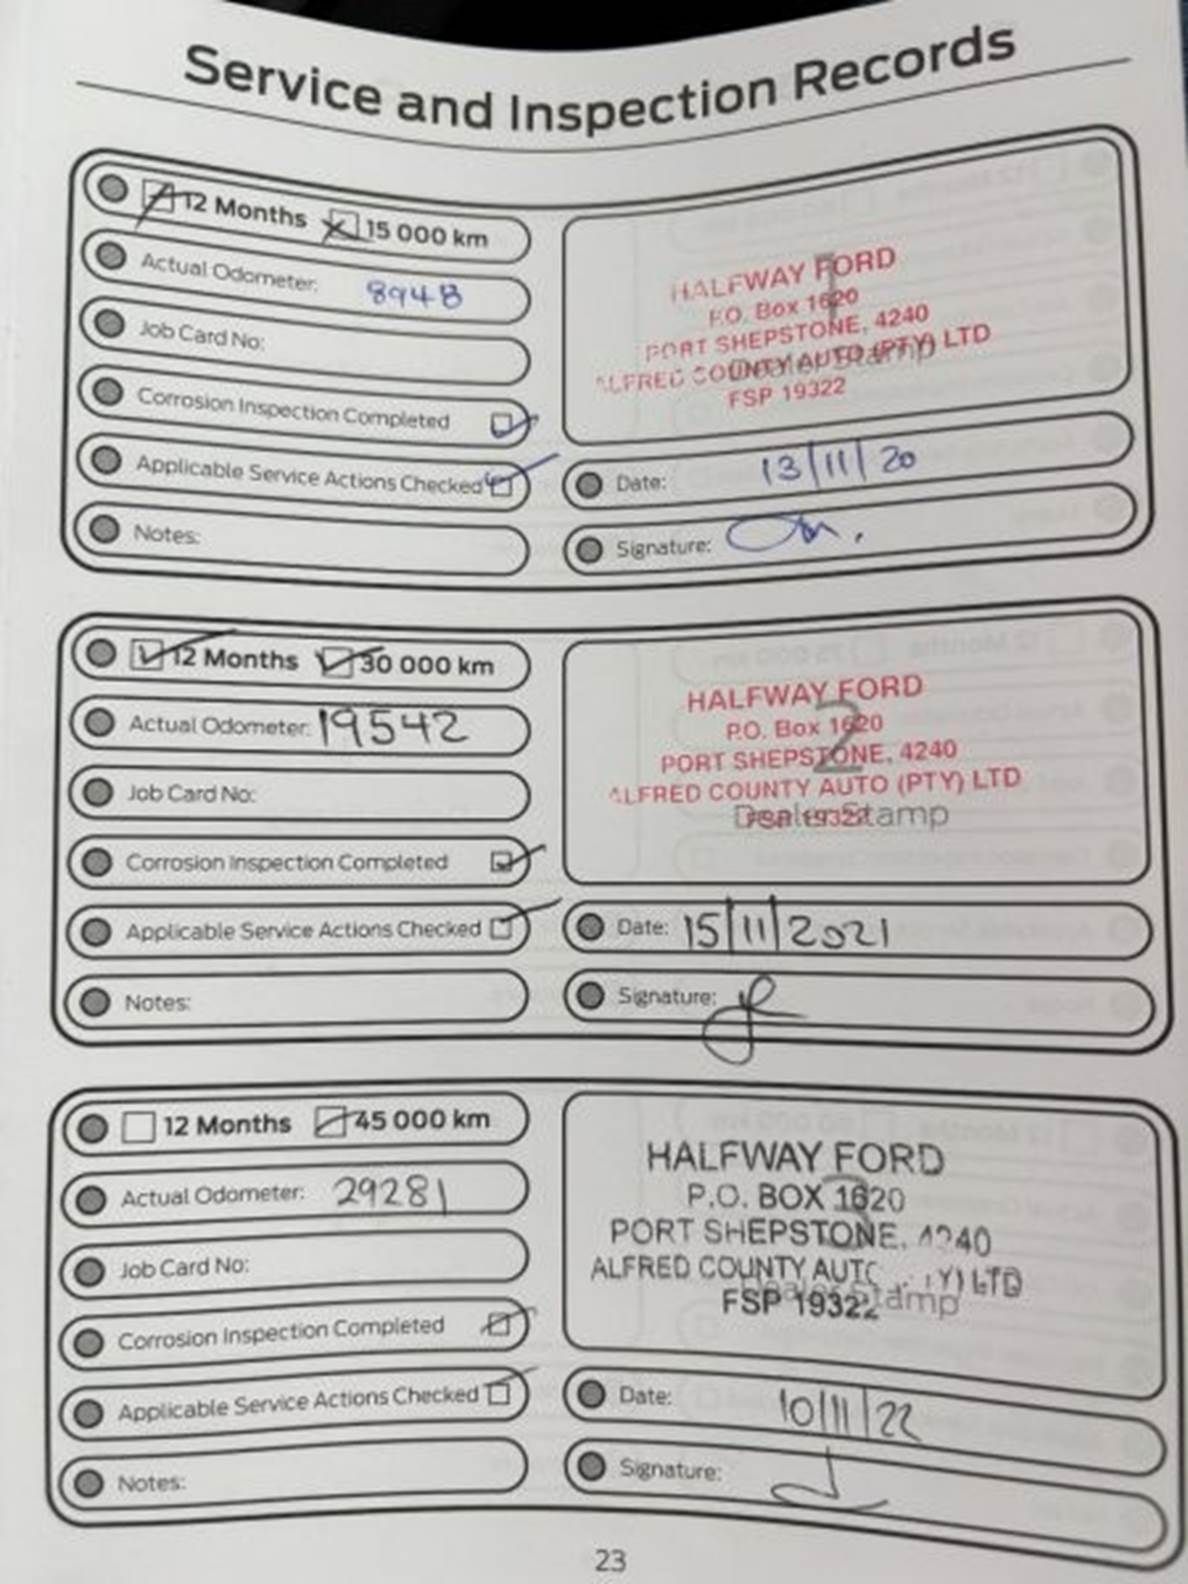 Service and Inspection Records
12 Months 15 000 km
Actual Odometer: 8948
Job Card No:
Corrosion Inspection Completed
Applicable Service Actions Checked
Notes:
1
HALFWAY FORD
P.O. Box 1620
PORT SHEPSTONE, 4240
ALFRED COUNTY AUTO (PTY) LTD
Dealer Stamp
FSP 19322
Date: 13/11/20
Signature:
12 Months 30 000 km
Actual Odometer: 19542
Job Card No:
Corrosion Inspection Completed
Applicable Service Actions Checked
Notes:
2
HALFWAY FORD
P.O. Box 1620
PORT SHEPSTONE, 4240
ALFRED COUNTY AUTO (PTY) LTD
Dealer Stamp
FSP 19322
Date: 15/11/2021
Signature:
12 Months 45 000 km
Actual Odometer: 29281
Job Card No:
Corrosion Inspection Completed
Applicable Service Actions Checked
Notes:
3
HALFWAY FORD
P.O. BOX 1620
PORT SHEPSTONE, 4240
ALFRED COUNTY AUTO (PTY) LTD
Dealer Stamp
FSP 19322
Date: 10/11/22
Signature:
23